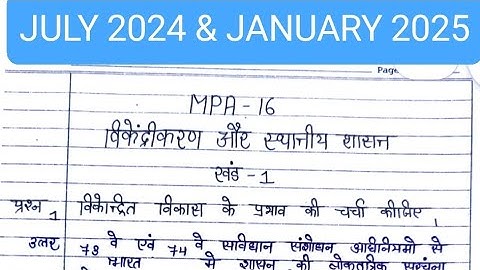 JULY 2024 & JANUARY 2025
Page
MPA-16
विकेंद्रीकरण और स्थानीय शासन
खंड-1
प्रश्न 1 विकेन्द्रित विकास के प्रभाव की चर्चा कीजिए।
उत्तर 73 वे एवं 74 वे सविधान संशोधन अधिनियमो से
भारत में शासन की लोकतांत्रिक संरचना